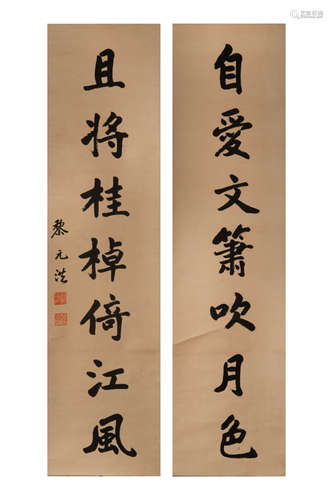 自愛文簫吹月色
且将桂棹倚江風
黎元洪